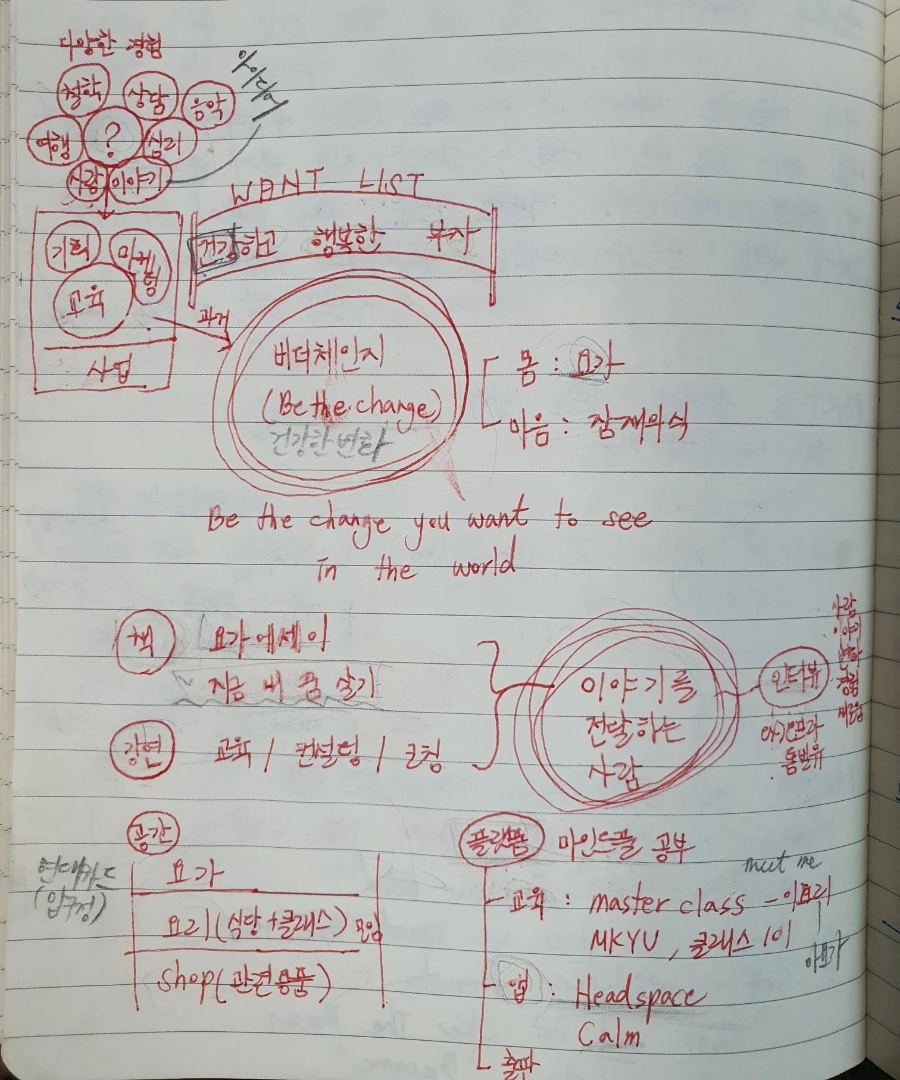 다양한 경험
철학
상담
음악
아이디어
여행
?
심리
사람
이야기
WANT LIST
건강하고 행복한 부자
기획
마케팅
교육
사업
과거
비더체인지
(Be the change)
건강한 변화
몸 : 요가
마음 : 잠재의식
Be the change you want to see
in the world
책
요가 에세이
지금 내 꿈 살기
강연
교육 / 컨설팅 / 코칭
이야기를
전달하는
사람
인터뷰
사람
이야기
변화
경험
새로움
공간
현대카드
(압구정)
요가
요리(식당+클래스) 모임
shop(관련용품)
플랫폼
마인드풀 공부
meet me
교육 : master class - 이효리
MKYU, 클래스 101
앱 : Headspace
Calm
출판